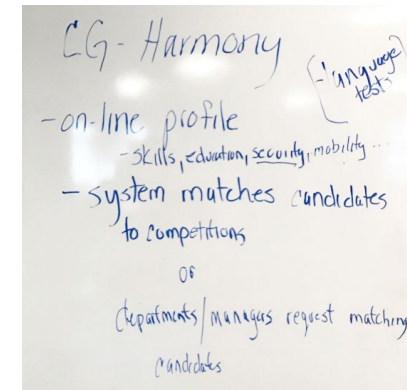 CG-Harmony
-language
tests
-on-line profile
-skills, education, security, mobility ...
-system matches candidates
to competitions
or
departments/managers request matching
candidates